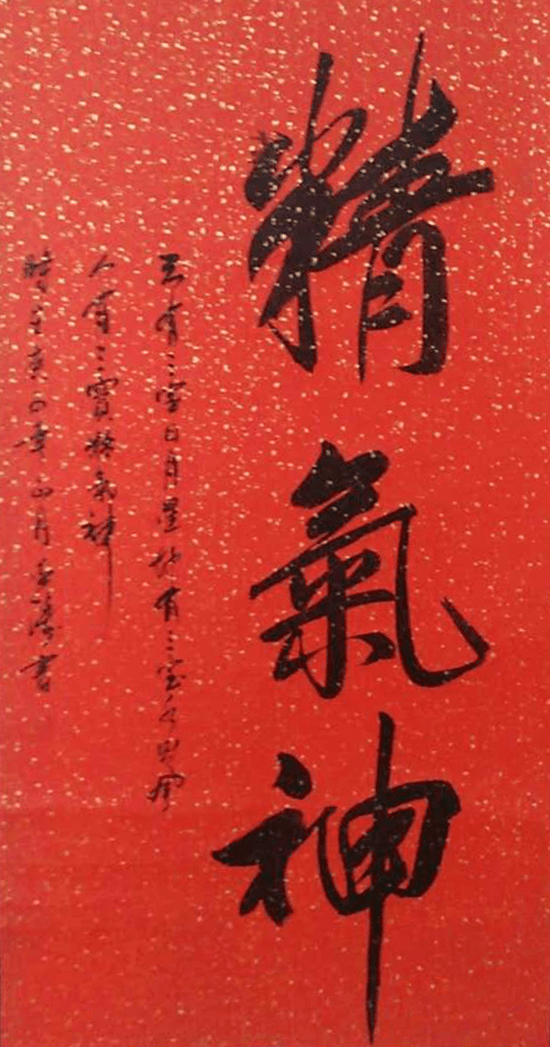 精氣神
天有三宝日月星地有三宝水火風
人有三寶精氣神
時 亥 年 月 書